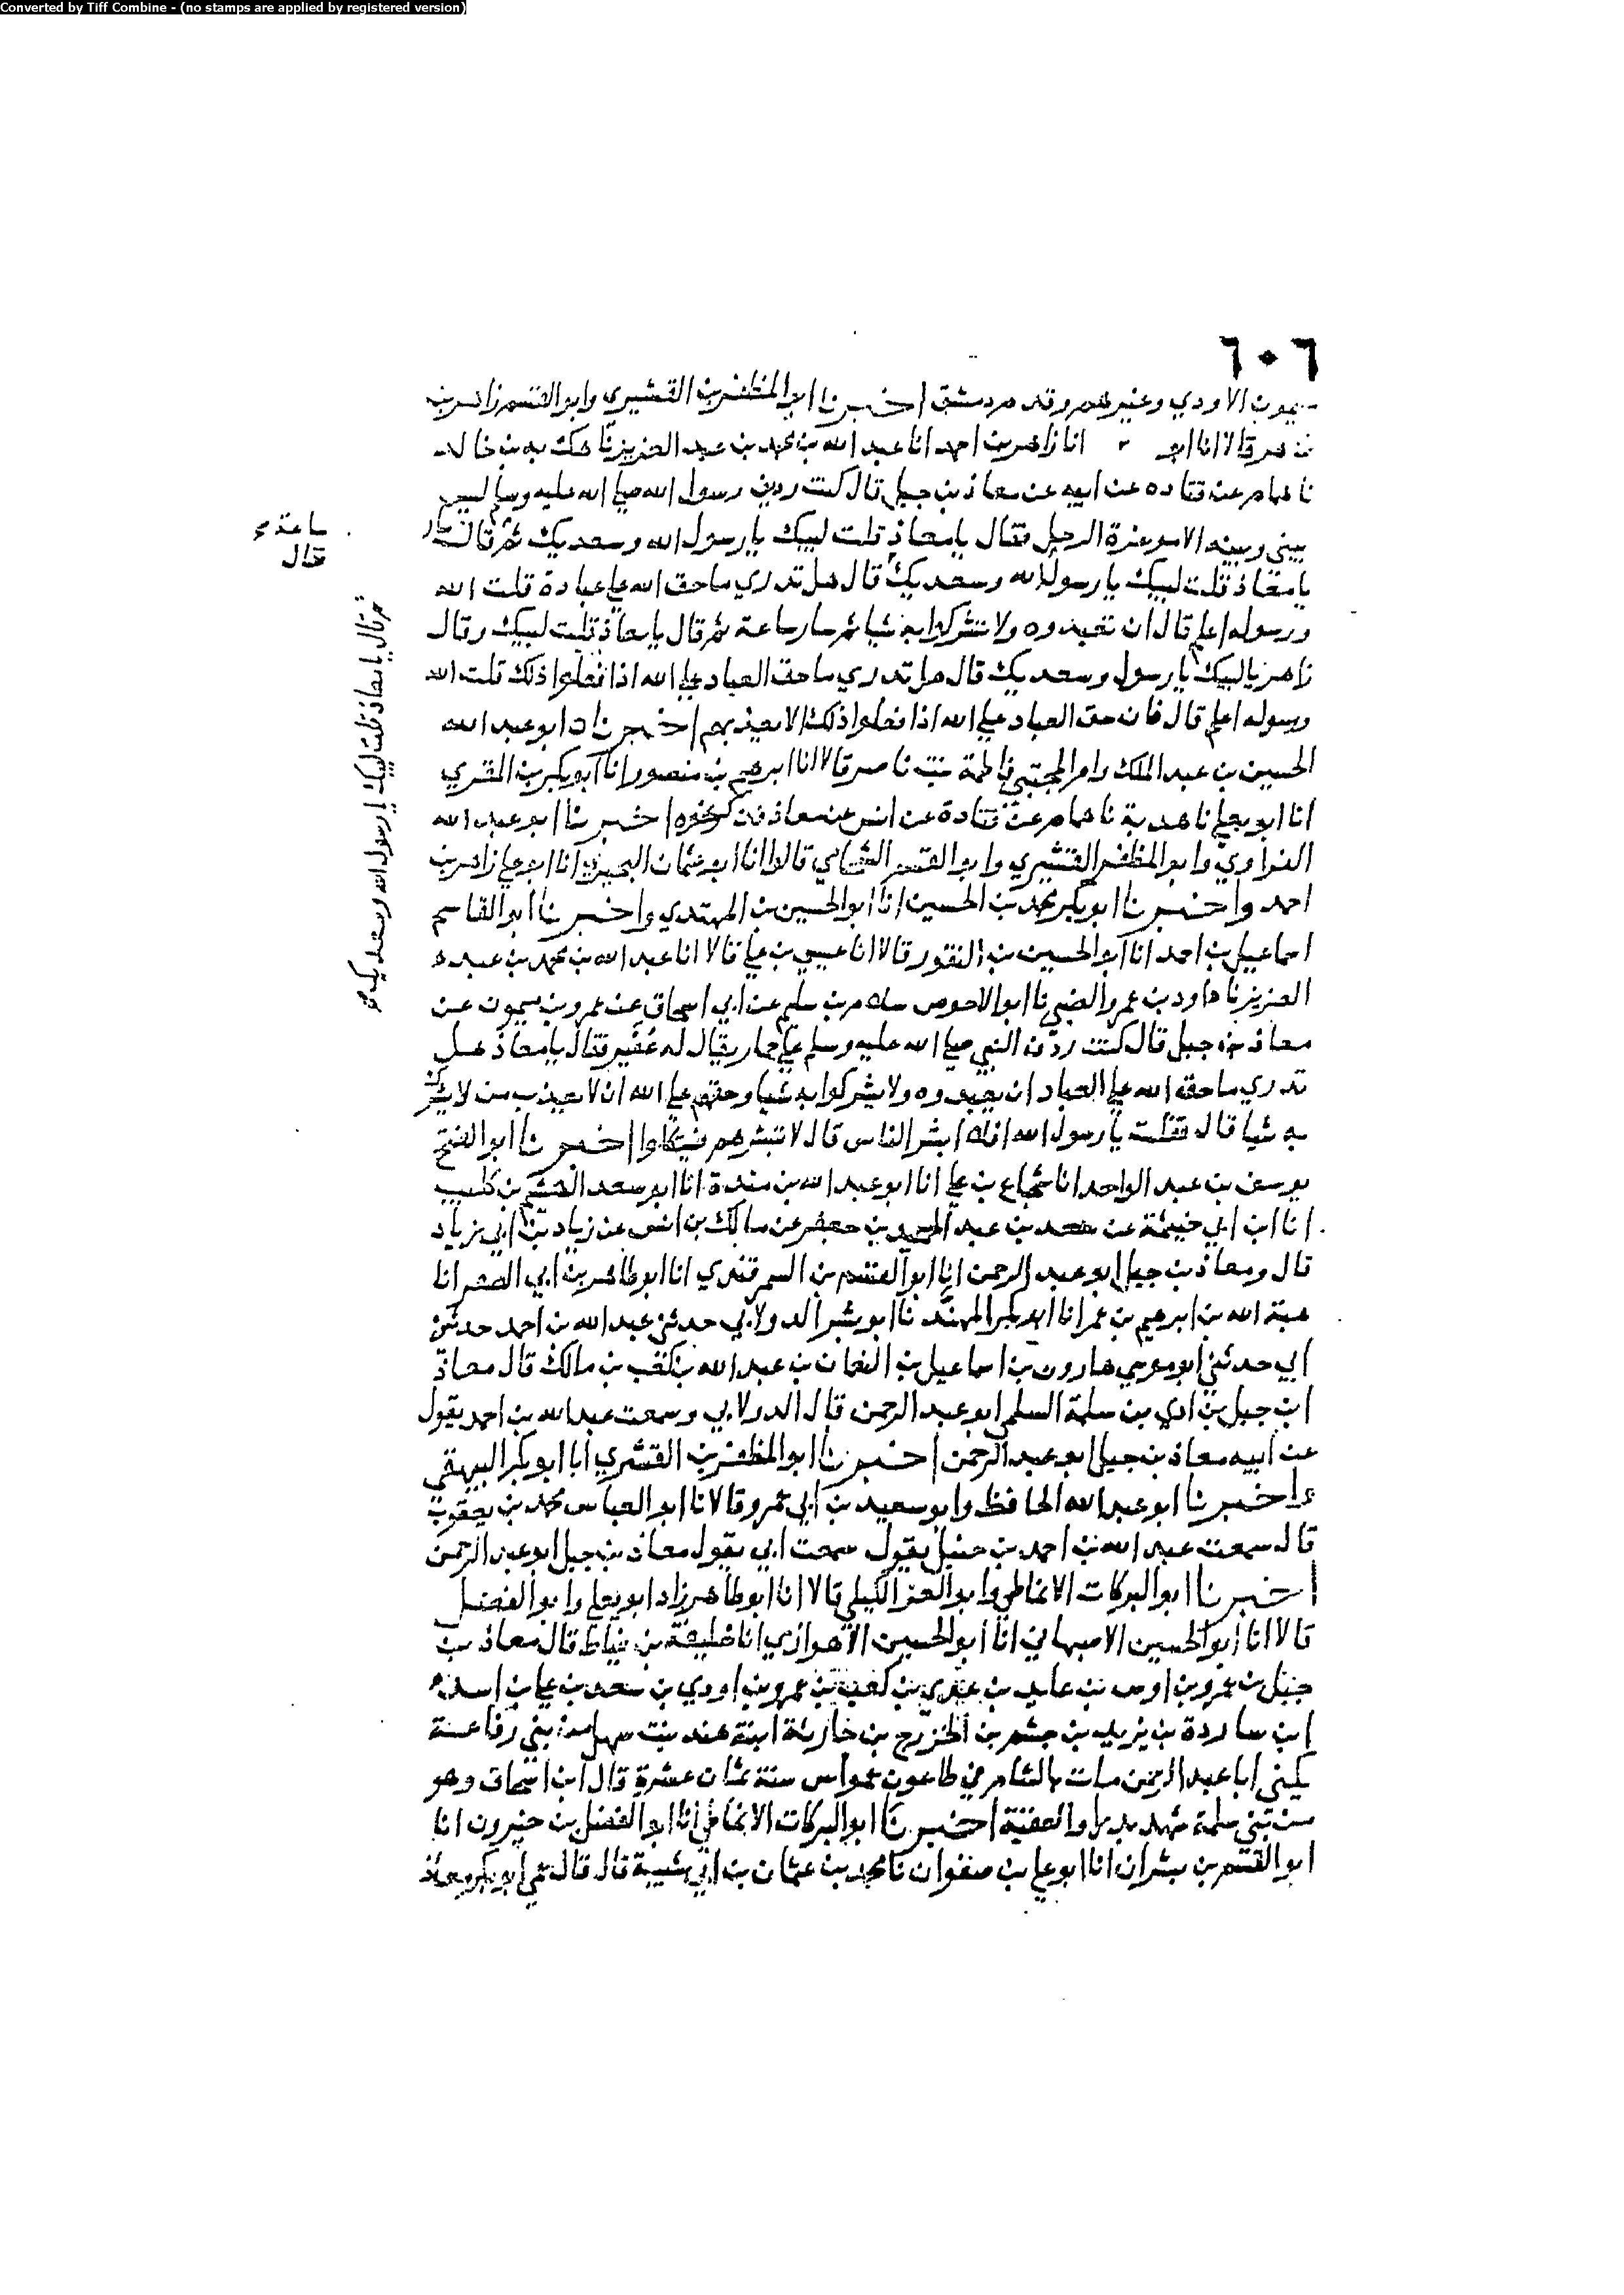 Converted by Tiff Combine - (no stamps are applied by registered version)
٦٠٦
ميمون الاودي وغيرهم وقدم دمشق اخبرنا ابو المظفر بن القشيري وابو القسم زاهر بن
طاهر قالا انا ابو انا زاهر بن احمد انا عبد الله بن محمد بن عبد العزيز نا هدبه بن خالد
نا همام عن قتاده عن انس عن معاذ بن جبل قال كنت رديف رسول الله صلى الله عليه وسلم ليس
بيني وبينه الا موخرة الرحل فقال يا معاذ قلت لبيك يا رسول الله وسعديك ثم قال سار
ساعة
قال
يا معاذ قلت لبيك يا رسول الله وسعديك قال هل تدري ما حق الله على عباده قلت الله
ورسوله اعلم قال ان تعبدوه ولا تشركوا به شيا ثم سار ساعة ثم قال يا معاذ قلت لبيك وقال
ثم قال يا معاذ قلت لبيك يا رسول الله وسعديك
زاهر يا لبيك يا رسول وسعديك قال هل تدري ما حق العباد على الله اذا فعلوا ذلك قلت الله
ورسوله اعلم قال فان حق العباد على الله اذا فعلوا ذلك الا يعذبهم اخبرنا ابو عبد الله
الحسين بن عبد الملك وام المجتبى فاطمة بنت ناصر قالا انا ابرهيم بن منصور انا ابو بكر بن المقري
انا ابو يعلى نا هدبة نا همام عن قتادة عن انس عن معاذ فذكر نحوه اخبرنا ابو عبد الله
الفراوي وابو المظفر القشيري وابو القسم الشحامي قالوا انا ابو عثمان البحيري انا ابو علي زاهر بن
احمد واخبرنا ابو بكر محمد بن الحسين انا ابو الحسين بن المهتدي واخبرنا ابو القاسم
اسماعيل بن احمد انا ابو الحسين بن النقور قالا انا عيسى بن علي قالا انا عبد الله بن محمد بن عبد
العزيز نا داود بن عمرو الضبي نا ابو الاحوص سلام بن سليم عن ابي اسحاق عن عمرو بن ميمون عن
معاذ بن جبل قال كنت ردف النبي صلى الله عليه وسلم على حمار يقال له عفير فقال يا معاذ هل
تدري ما حق الله على العباد ان يعبدوه ولا يشركوا به شيا وحقهم على الله ان لا يعذب من لا يشرك
به شيا قال فقلت يا رسول الله افلا ابشر الناس قال لا تبشرهم فيتكلوا اخبرنا ابو الفتح
يوسف بن عبد الواحد انا شجاع بن علي انا ابو عبد الله بن مندة انا ابو سعد الهيثم بن كليب
انا ابن ابي خيثمة عن محمد بن عبد الحميد بن جعفر عن مالك بن انس عن زياد بن ابي زياد
قال ومعاذ بن جبل ابو عبد الرحمن انا ابو القسم بن السمرقندي انا ابو طاهر بن ابي الصقر انا
هبة الله بن ابرهيم بن عمر انا ابو بكر المهندس نا ابو بشر الدولابي حدثني عبد الله بن احمد حدثني
ابي حدثني ابو موسى هارون بن اسماعيل بن النعمان بن عبد الله بن كعب بن مالك قال معاذ
ابن جبل بن ادي بن سلمة السلمي ابو عبد الرحمن قال الدولابي وسمعت عبد الله بن احمد يقول
عن ابيه معاذ بن جبل ابو عبد الرحمن اخبرنا ابو المظفر بن القشيري انا ابو بكر البيهقي
واخبرنا ابو عبد الله الحافظ وابو سعيد بن ابي عمرو قالا نا ابو العباس محمد بن يعقوب
قال سمعت عبد الله بن احمد بن حنبل يقول سمعت ابي يقول معاذ بن جبل ابو عبد الرحمن
اخبرنا ابو البركات الانماطي وابو العز الكيلي قالا انا ابو طاهر زاد ابو يعلى وابو الفضل
قالا انا ابو الحسين الاصبهاني انا ابو الحسين الاهوازي انا خليفة بن خياط قال معاذ بن
جبل بن عمرو بن اوس بن عايد بن عدي بن كعب بن عمرو بن اودي بن سعد بن علي بن اسد
ابن ساردة بن يزيد بن جشم بن الخزرج بن حارثة ابنة هند بنت سهل من بني رفاعة
يكنى ابا عبد الرحمن مات بالشام في طاعون عمواس سنة ثمان عشرة قال ابن اسحاق وهو
من بني سلمة شهد بدرا والعقبة اخبرنا ابو البركات الانماطي انا ابو الفضل بن خيرون انا
ابو القسم بن بشران انا ابو علي بن صفوان نا محمد بن عثمان بن ابي شيبة قال قال عمي ابو بكر معاذ